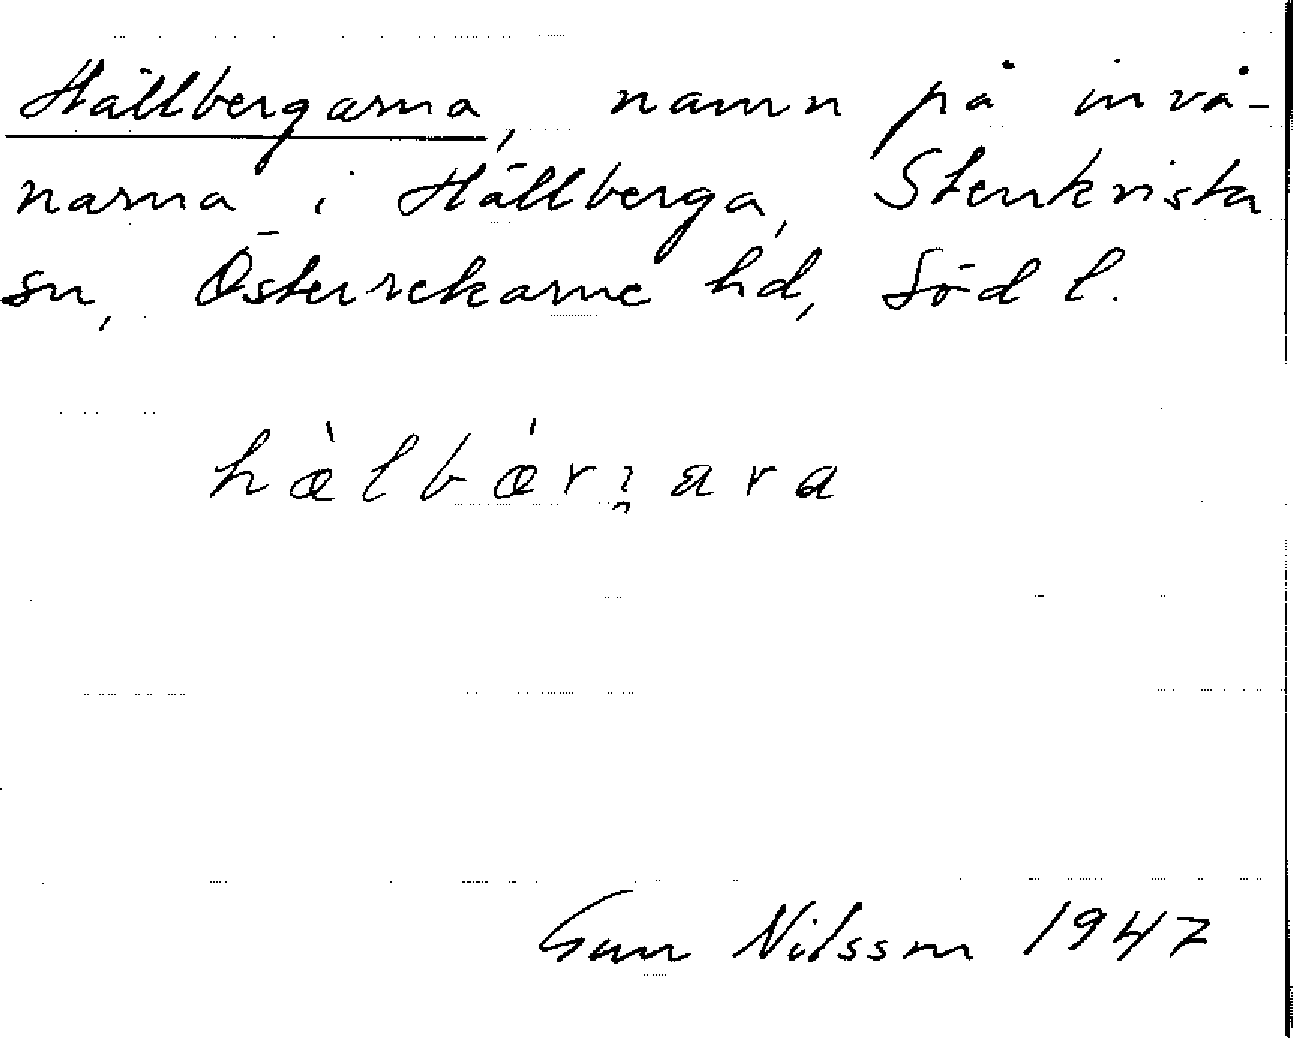 Hällbergarna, namn på invå-
narna i Hällberga, Stenkvista
sn, Österrekarne hd, Söd l.
hæ̀lbǽrɂ̨ara
Gun Nilsson 1947